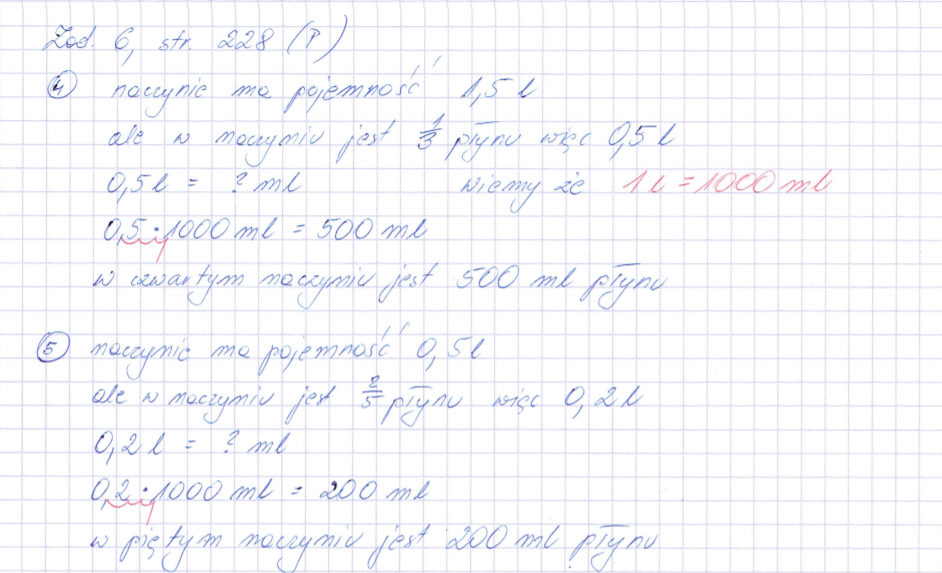 Zad. 6, str. 228 (P)
4 naczynie ma pojemność 1,5 l
ale w naczyniu jest 1/3 płynu więc 0,5 l
0,5 l = ? ml wiemy że 1 l = 1000 ml
0,5 · 1000 ml = 500 ml
w czwartym naczyniu jest 500 ml płynu
5 naczynie ma pojemność 0,5 l
ale w naczyniu jest 2/5 płynu więc 0,2 l
0,2 l = ? ml
0,2 · 1000 ml = 200 ml
w piętym naczyniu jest 200 ml płynu